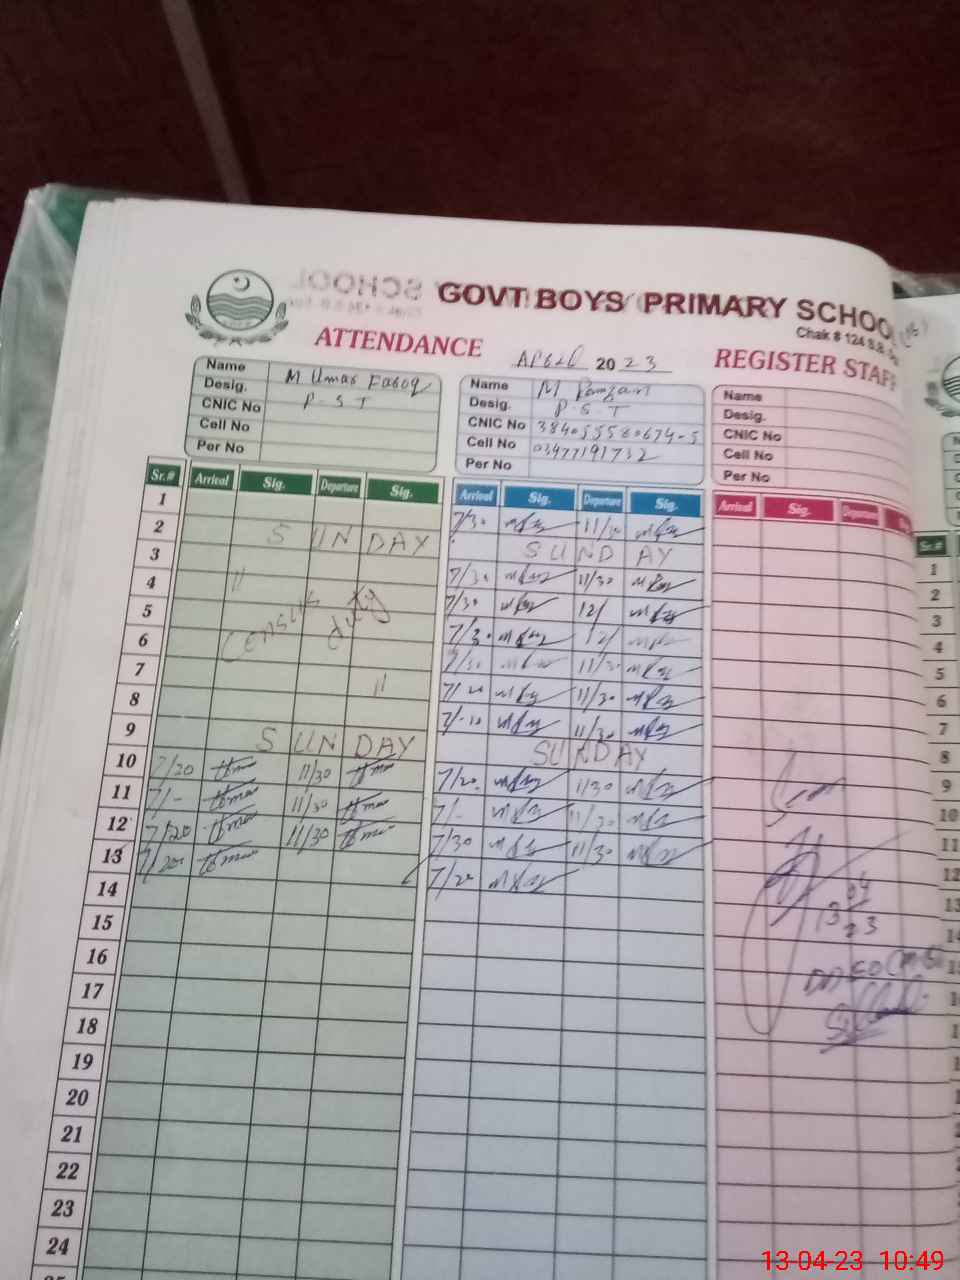 GOVT BOYS PRIMARY SCHOOL
Chak # 124 S.B.
ATTENDANCE
2023
REGISTER STAFF
Name M Umar Farooq
Desig. P.S.T
CNIC No
Cell No
Per No
Name M Ramzan
Desig. P.S.T
CNIC No
Cell No 03477191732
Per No
Name
Desig.
CNIC No
Cell No
Per No
Sr.# Arrival Sig. Departure Sig. Arrival Sig. Departure Sig. Arrival Sig. Departure
1 7/30 11/30
2 SUNDAY SUNDAY
3 7/30 11/30
4 " 7/30 12/
5 Census duty 7/30 12/
6 7/30 11/30
7 " 7/20 11/30
8 11/30
9 SUNDAY SUNDAY
10 7/20 11/30 7/20 11/30
11 7/- 11/30 7/- 11/30
12 7/20 11/30 7/30 11/30
13 7/20 7/20
14
15
16
17
18
19
20
21
22
23
24
13 04 23
Sr.#
1
2
3
4
5
6
7
8
9
10
11
12
13
13-04-23 10:49